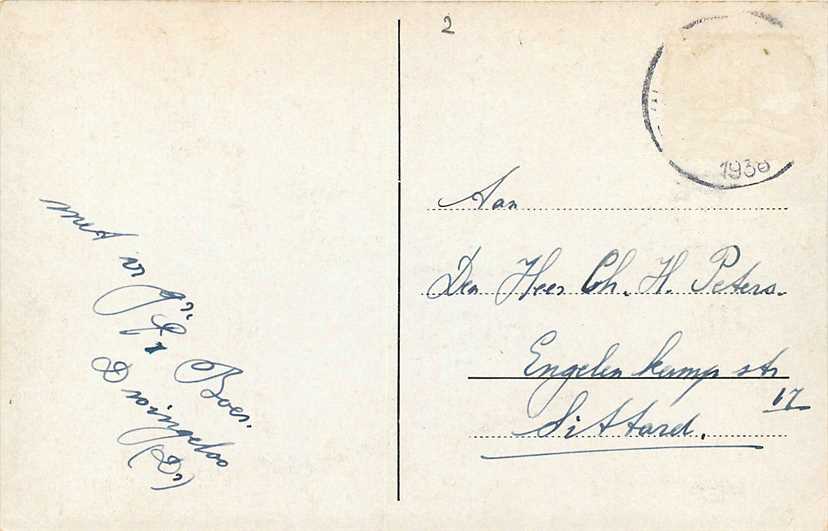 2
1930
Aan
Den Heer Ch. H. Peters.
Engelenkamp str
17
Sittard.
met
Boer.
Dwingeloo
(D)